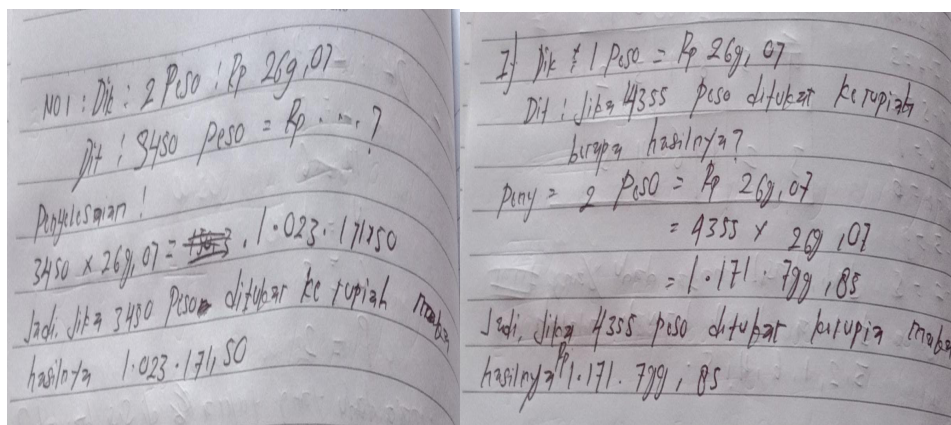 NO 1 : Dik : 2 Peso : Rp 269,07
Dit : 3450 peso = Rp . ... ?
Penyelesaian !
3450 x 269,07 = 1.023.171,50
Jadi. Jika 3450 Peso ditukar ke rupiah maka
hasilnya 1.023.171,50
I) Dik : 1 Peso = Rp 269,07
Dit : Jika 4355 peso ditukar ke rupiah
berapa hasilnya?
Peny = 2 Peso = Rp 269,07
= 4355 x 269,07
= 1.171.799,85
Jadi, Jika 4355 peso ditukar kerupia maka
hasilnya Rp 1.171.799,85